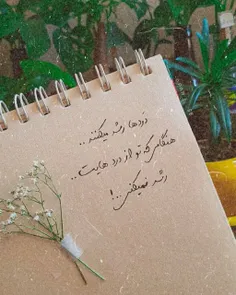 دردها رشد میکنند...
هنگامی که تو از درد هایت..
رشد نمیکنی..!